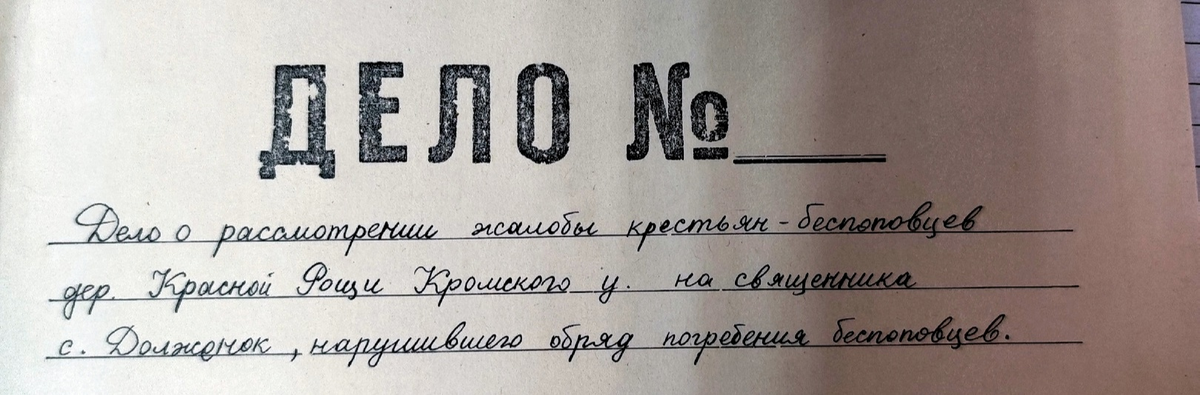 ДЕЛО №
Дело о рассмотрении жалобы крестьян-беспоповцев
дер. Красной Рощи Кромского у. на священника
с. Долженок, нарушившего обряд погребения беспоповцев.